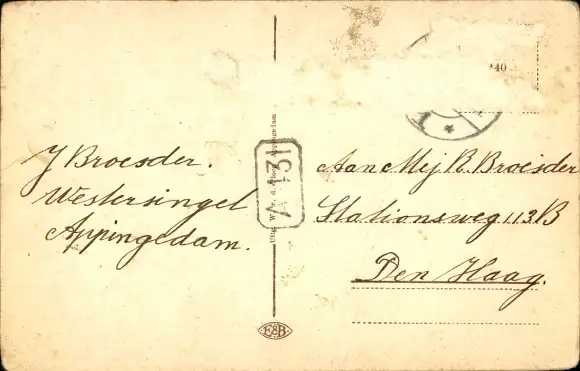 J Broesder.
Westersingel
Appingedam.
A 131
Aan Mej. R. Broesder
Stationsweg 113B
Den Haag.
40
1
E&B